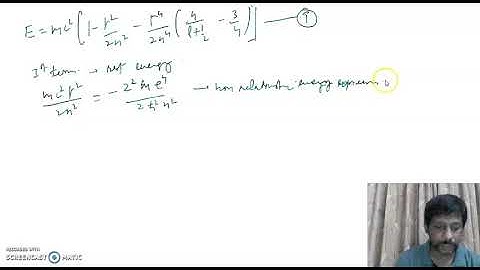 E = mc² [1 - r²/2n² - r⁴/2n⁴ (n/(l+½) - 3/4)] — 1
Ist term → rest energy
mc²r²/2n² = - z²me⁴/2ħ²n² → non relativistic energy
RECORDED WITH
SCREENCAST O MATIC